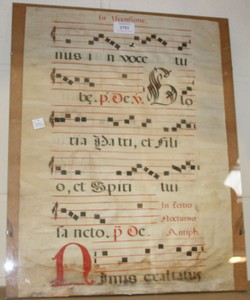 In Ascensione.
nus i n voce tu
bę. p. De. v. Glo
ria Patri, et Fili
o, et Spiri tui
sancto. p. De
In tertio
Nocturno
Antiph.
Nimis exaltatus